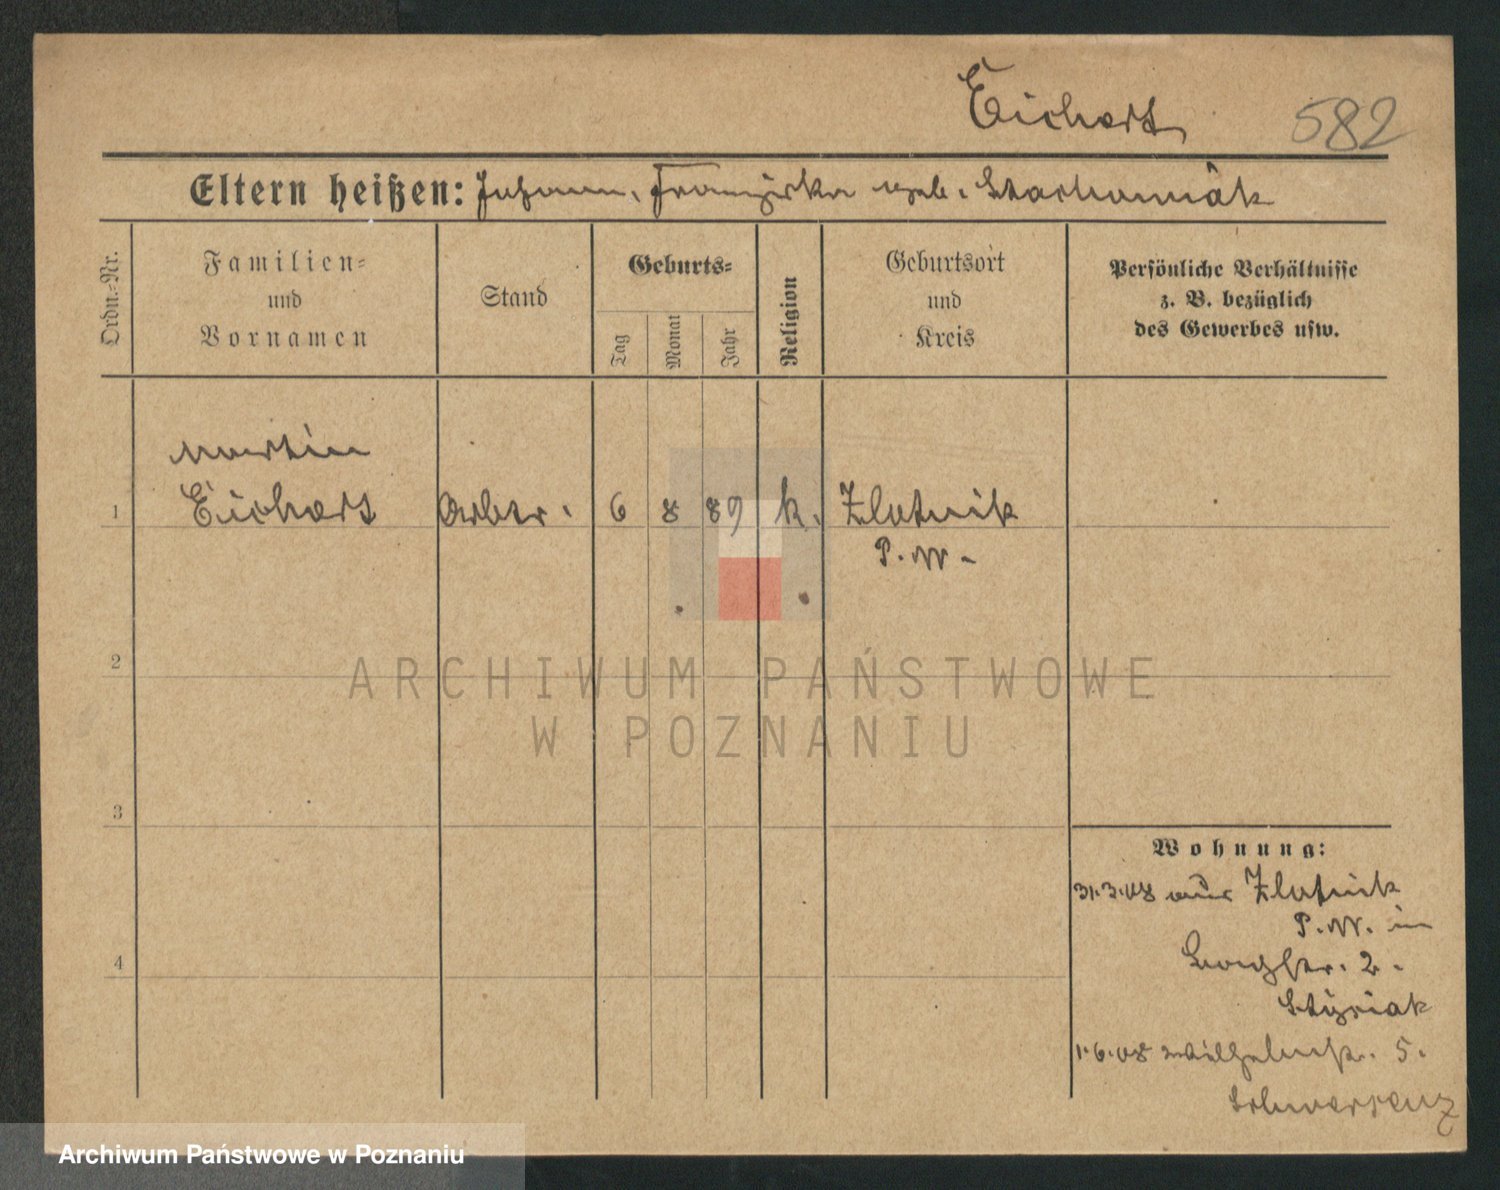 Eichert 582
Eltern heißen: Johann, Franziska geb. Stachowiak
Ordn.-Nr.
Familien-
und
Vornamen
Stand
Geburts-
Tag
Monat
Jahr
Religion
Geburtsort
und
Kreis
Persönliche Verhältnisse
z. B. bezüglich
des Gewerbes usw.
Martin
1 Eichert Arbtr. 6 8 89 k. Zlotnik
P. W.
2
3
4
Wohnung:
31.3.08 aus Zlotnik
P. W. in
2.
1.6.08 Wilhelmstr. 5.
Schwersenz
ARCHIWUM PAŃSTWOWE
W POZNANIU
Archiwum Państwowe w Poznaniu